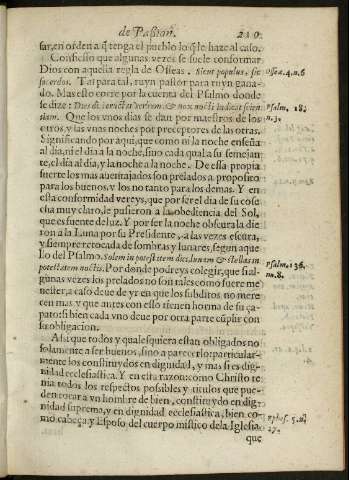 de Passion. 210.
sar, en orden a q̃ tenga el pueblo lo q̃ le haze al caso.
Confiesso que algunas vezes se suele conformar
Dios con aquella regla de Osseas. Sicut populus, sic
sacerdos. Tal para tal, ruyn pastor para ruyn gana-
do. Mas esto corre por la cuenta del Psalmo donde
se dize: Dies diei eructat verbum, & nox nocti indicat scien
tiam. Que los vnos dias se dan por maestros de los
otros, y las vnas noches por preceptores de las otras.
Significando por aqui, que como ni la noche enseña
al dia, ni el dia a la noche, sino cada qual a su semejan-
te, el dia al dia, y la noche a la noche. De essa propia
suerte los mas auentajados son prelados a proposito
para los buenos, y los no tanto para los demas. Y en
esta conformidad vereys, que por ser el dia de su cose
cha muy claro, le pusieron a la obediencia del Sol,
que es fuente de luz. Y por ser la noche obscura la die
ron a la Luna por su Presidente, a las vezes escura,
y siempre retocada de sombras y lunares, segun aque
llo del Psalmo. Solem in potestatem diei, lunam & stellas in
potestatem noctis. Por donde podreys colegir, que si al-
gunas vezes los prelados no son tales como fuere me
nester, a caso deue de yr en que los subditos no mere
cen mas y que antes con esso tienen horma de su ça-
pato: si bien cada vno deue por otra parte cũplir con
su obligacion.
Assi que todos y qualesquiera estan obligados no
solamente a ser buenos, sino a parecerlo: particular-
mente los constituydos en dignidad, y mas si es dig-
nidad ecclesiastica. Y en esta razon: como Christo te
nia todos los respectos possibles y titulos que pue-
den tocar a vn hombre de bien, constituydo en dig-
nidad suprema, y en dignidad ecclesiastica, bien co-
mo cabeça y Esposo del cuerpo mistico de la Iglesia
que
Osea. 4. n. 6
Psalm. 18.
n. 3.
Psalm. 136.
nu. 8.
Ephes. 5. n.
27.